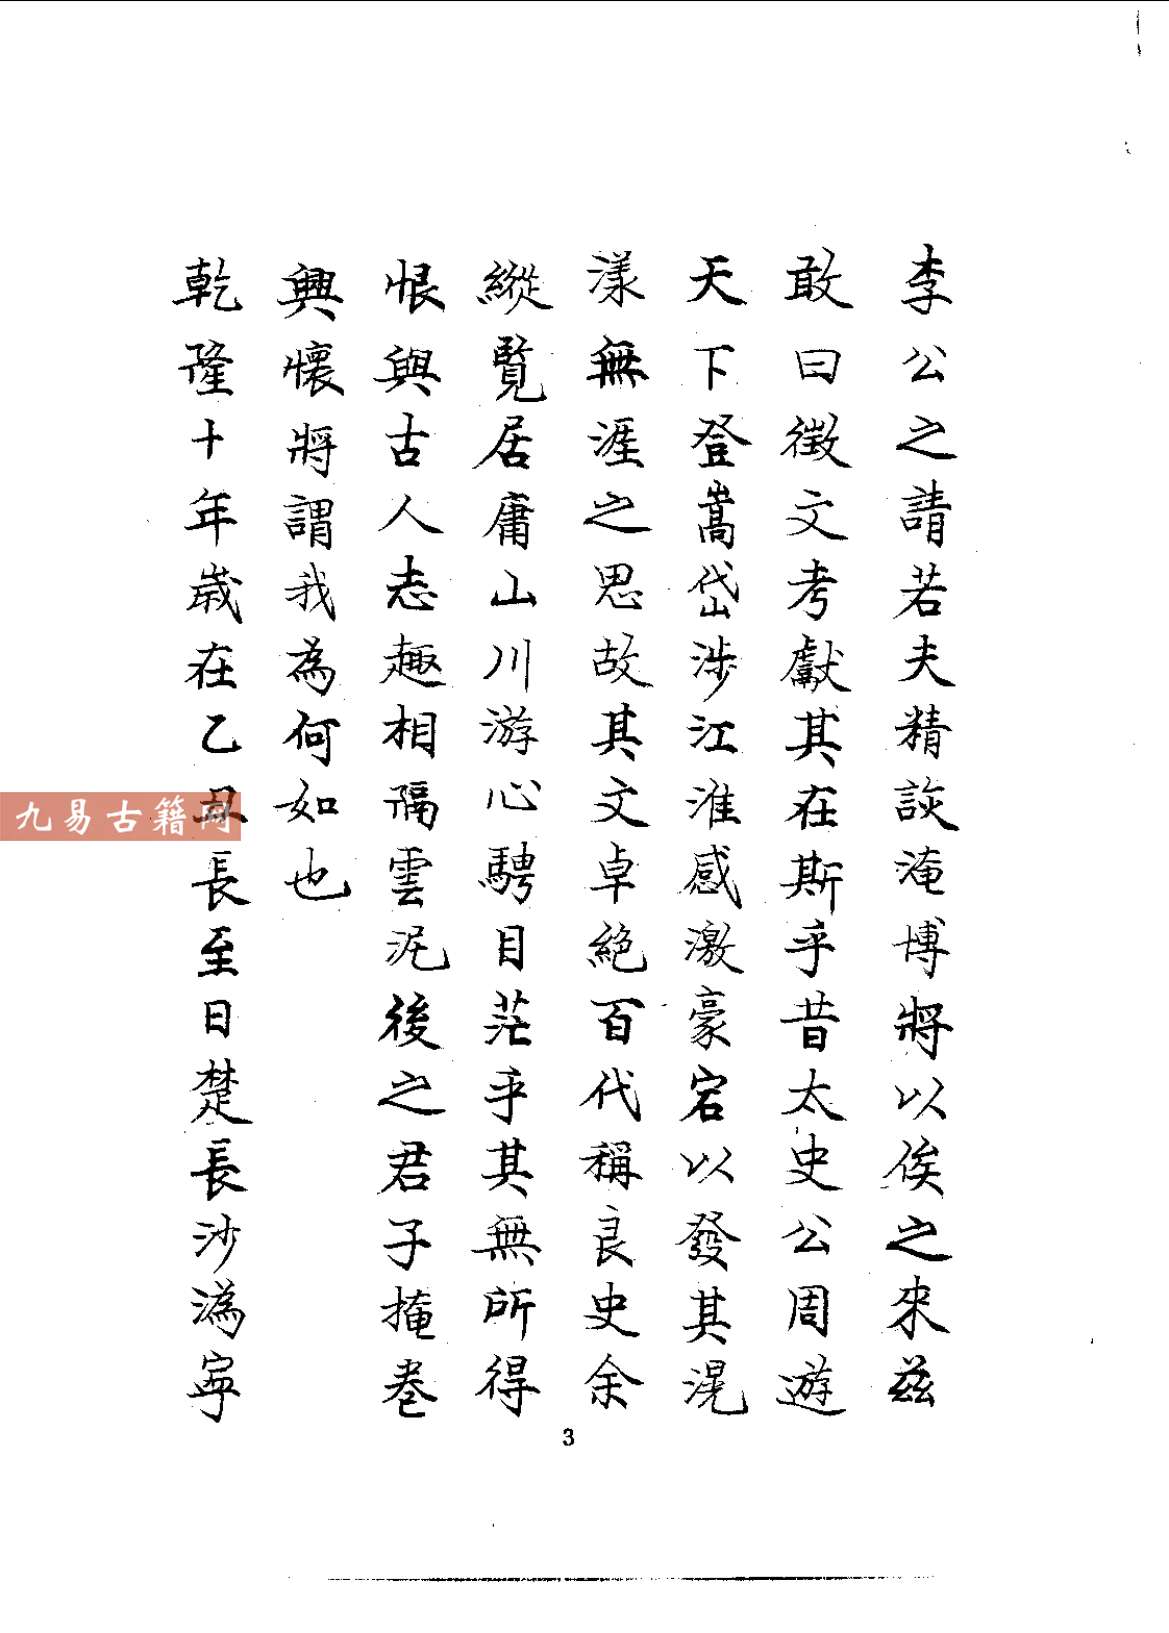 李公之請若夫精談淹博將以俟之來茲
敢曰徵文考獻其在斯乎昔太史公周遊
天下登嵩岱涉江淮感激豪宕以發其滉
漾無涯之思故其文卓絕百代稱良史余
縱覽居庸山川游心騁目茫乎其無所得
恨與古人志趣相隔雲泥後之君子掩卷
興懷將謂我為何如也
乾隆十年歲在乙丑長至日楚長沙溈寧
九易古籍网
3